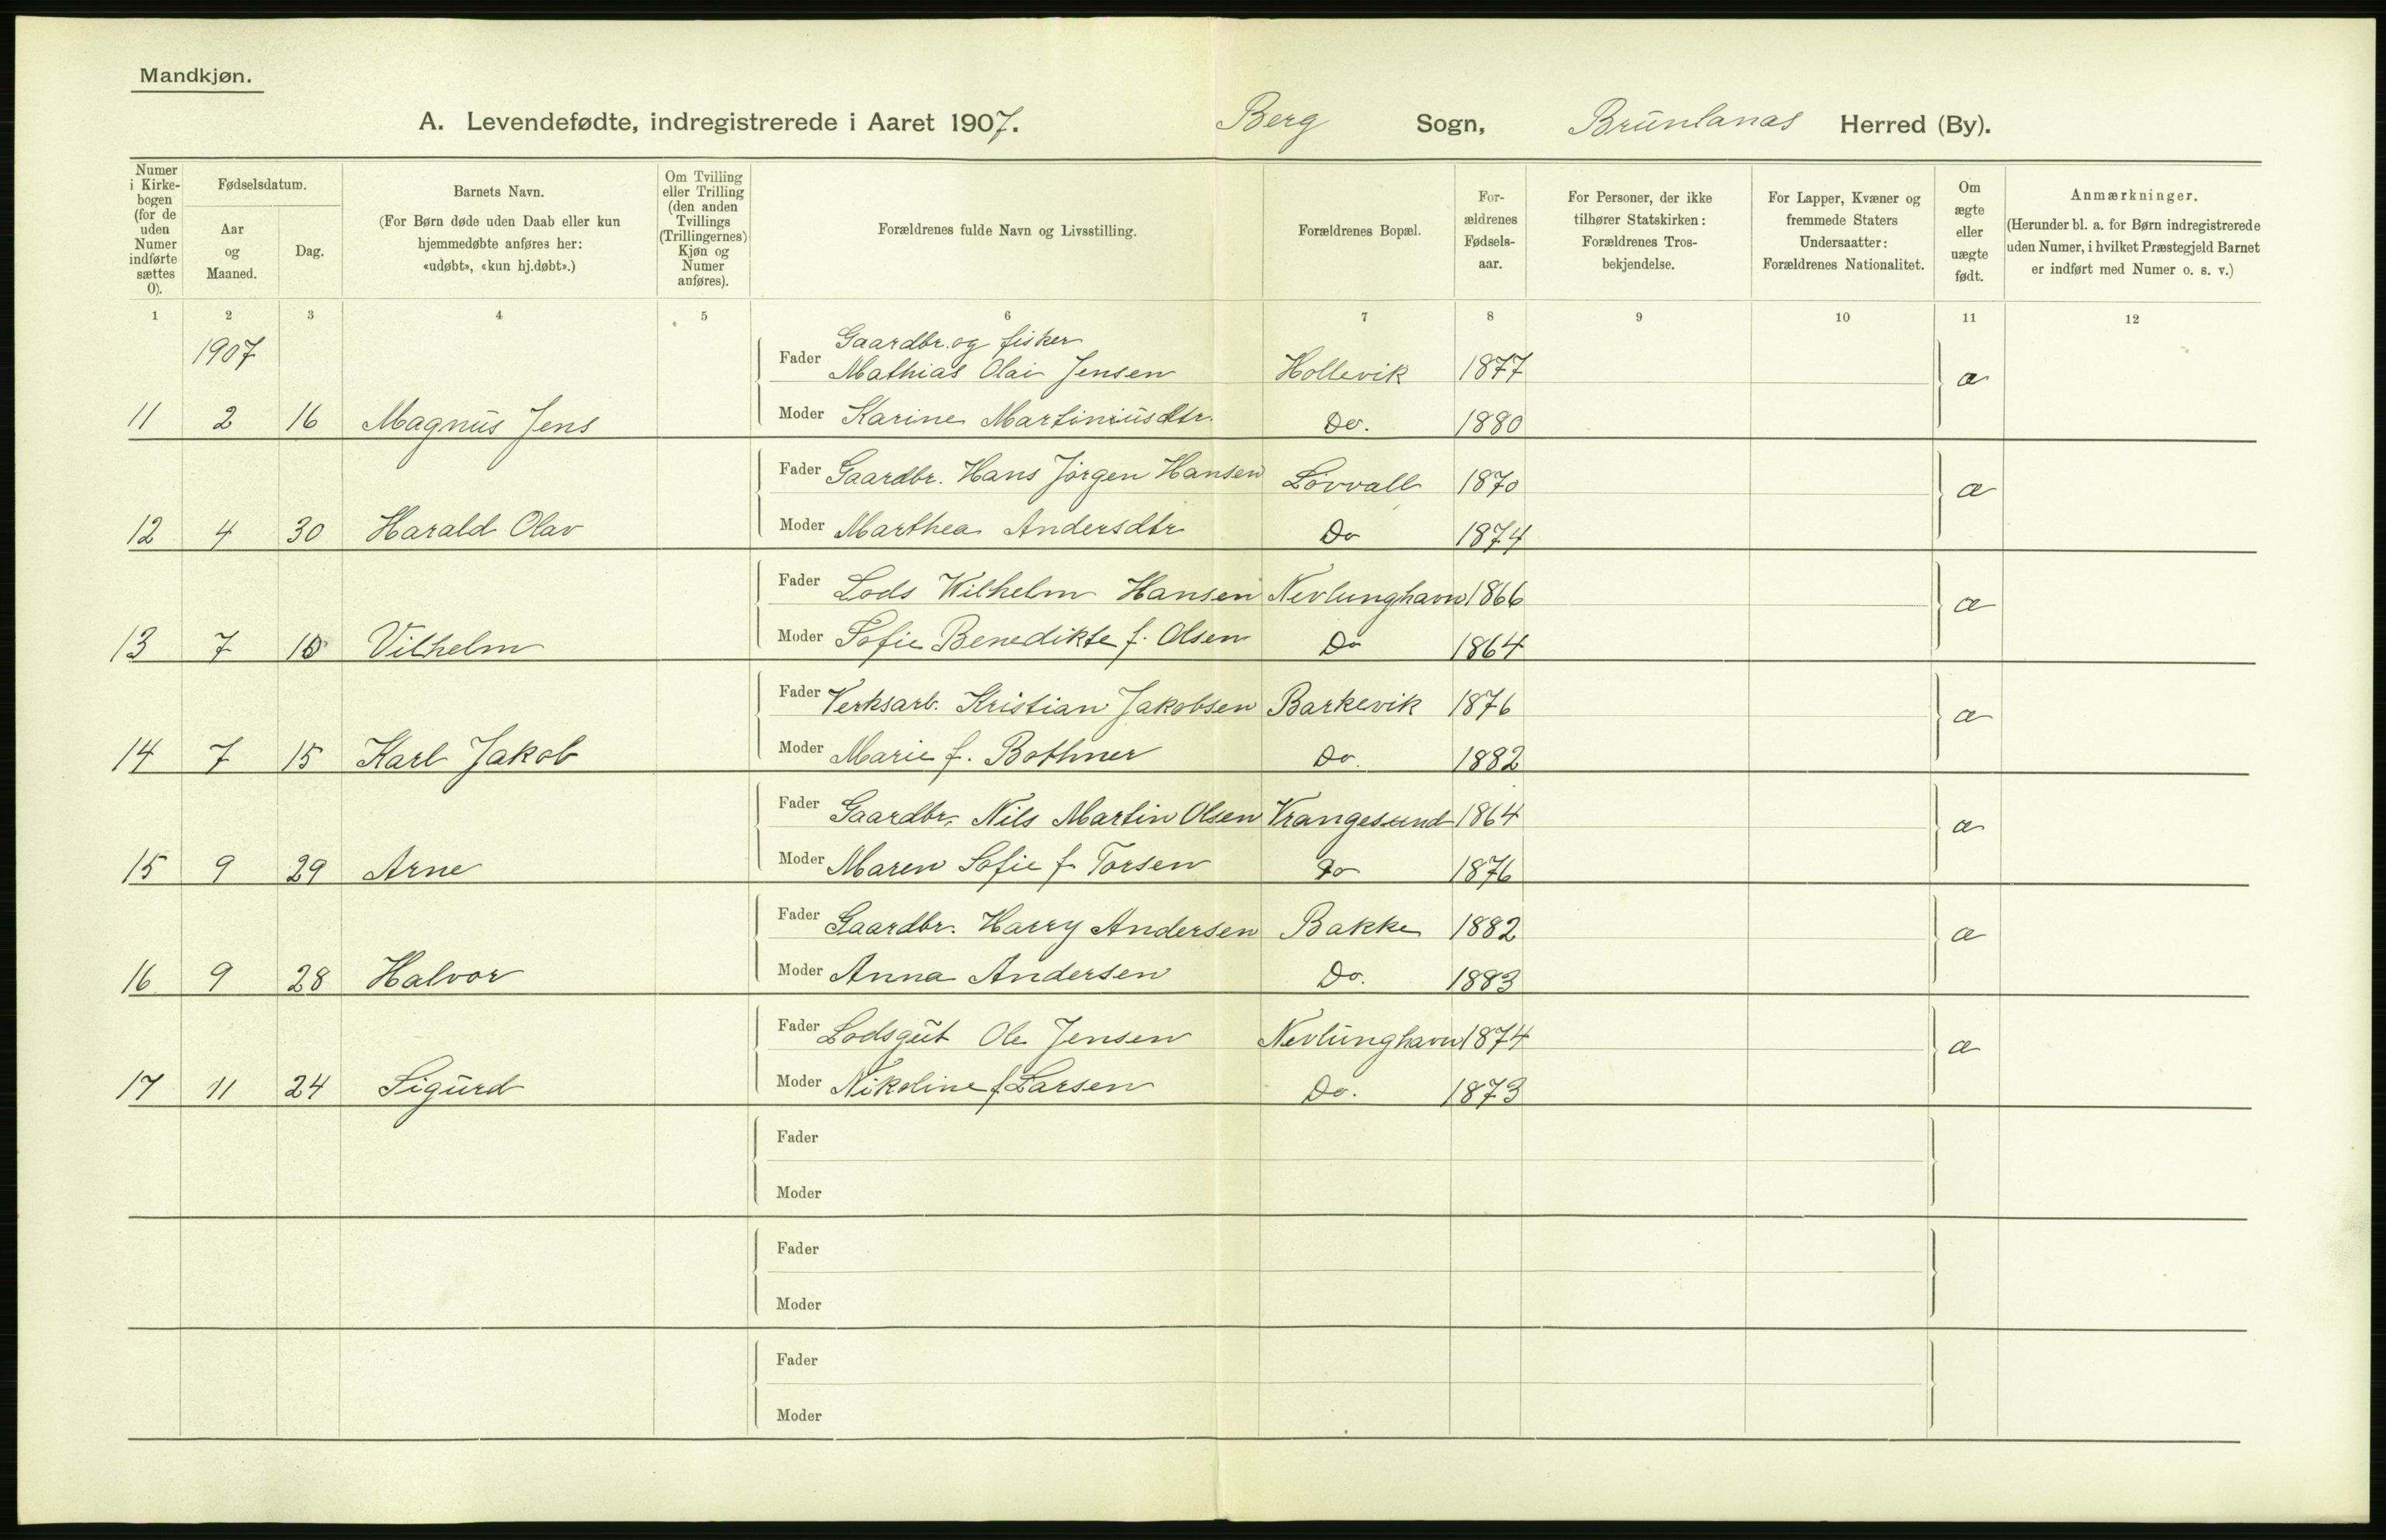 Mandkjøn.
A. Levendefødte, indregistrerede i Aaret 1907. Berg Sogn, Brunlanas Herred (By).
Numer i Kirkebogen (for de uden Numer indførte sættes 0).
Fødselsdatum.
Aar og Maaned.
Dag.
Barnets Navn.
(For Børn døde uden Daab eller kun hjemmedøbte anføres her: «udøbt», «kun hj.døbt».)
Om Tvilling eller Trilling (den anden Tvillings (Trillingernes) Kjøn og Numer anføres).
Forældrenes fulde Navn og Livsstilling.
Forældrenes Bopæl.
Forældrenes Fødselsaar.
For Personer, der ikke tilhører Statskirken: Forældrenes Trosbekjendelse.
For Lapper, Kvæner og fremmede Staters Undersaatter: Forældrenes Nationalitet.
Om ægte eller uægte født.
Anmærkninger.
(Herunder bl. a. for Børn indregistrerede uden Numer, i hvilket Præstegjeld Barnet er indført med Numer o. s. v.)
1 2 3 4 5 6 7 8 9 10 11 12
1907
Gaardbr. og fisker
Fader Mathias Olai Jensen Hollevik 1877 æ
11 2 16 Magnus Jens Moder Karine Martiniusdtr. Do. 1880
Fader Gaardbr. Hans Jørgen Hansen Løvvall 1870 æ
12 4 30 Harald Olav Moder Marthea Andersdtr Do 1874
Fader Lods Wilhelm Hansen Nevlunghavn 1866 æ
13 7 10 Vilhelm Moder Sofie Benedikte f. Olsen Do 1864
Fader Verksarb. Kristian Jakobsen Barkevik 1876 æ
14 7 15 Karl Jakob Moder Marie f. Bothner Do. 1882
Fader Gaardbr. Nils Martin Olsen Vrangesund 1864 æ
15 9 29 Arne Moder Maren Sofie f. Torsen Do 1876
Fader Gaardbr. Harry Andersen Bakke 1882 æ
16 9 28 Halvor Moder Anna Andersen Do. 1883
Fader Lodsgut Ole Jensen Nevlunghavn 1874 æ
17 11 24 Sigurd Moder Nikoline f. Larsen Do. 1873
Fader
Moder
Fader
Moder
Fader
Moder